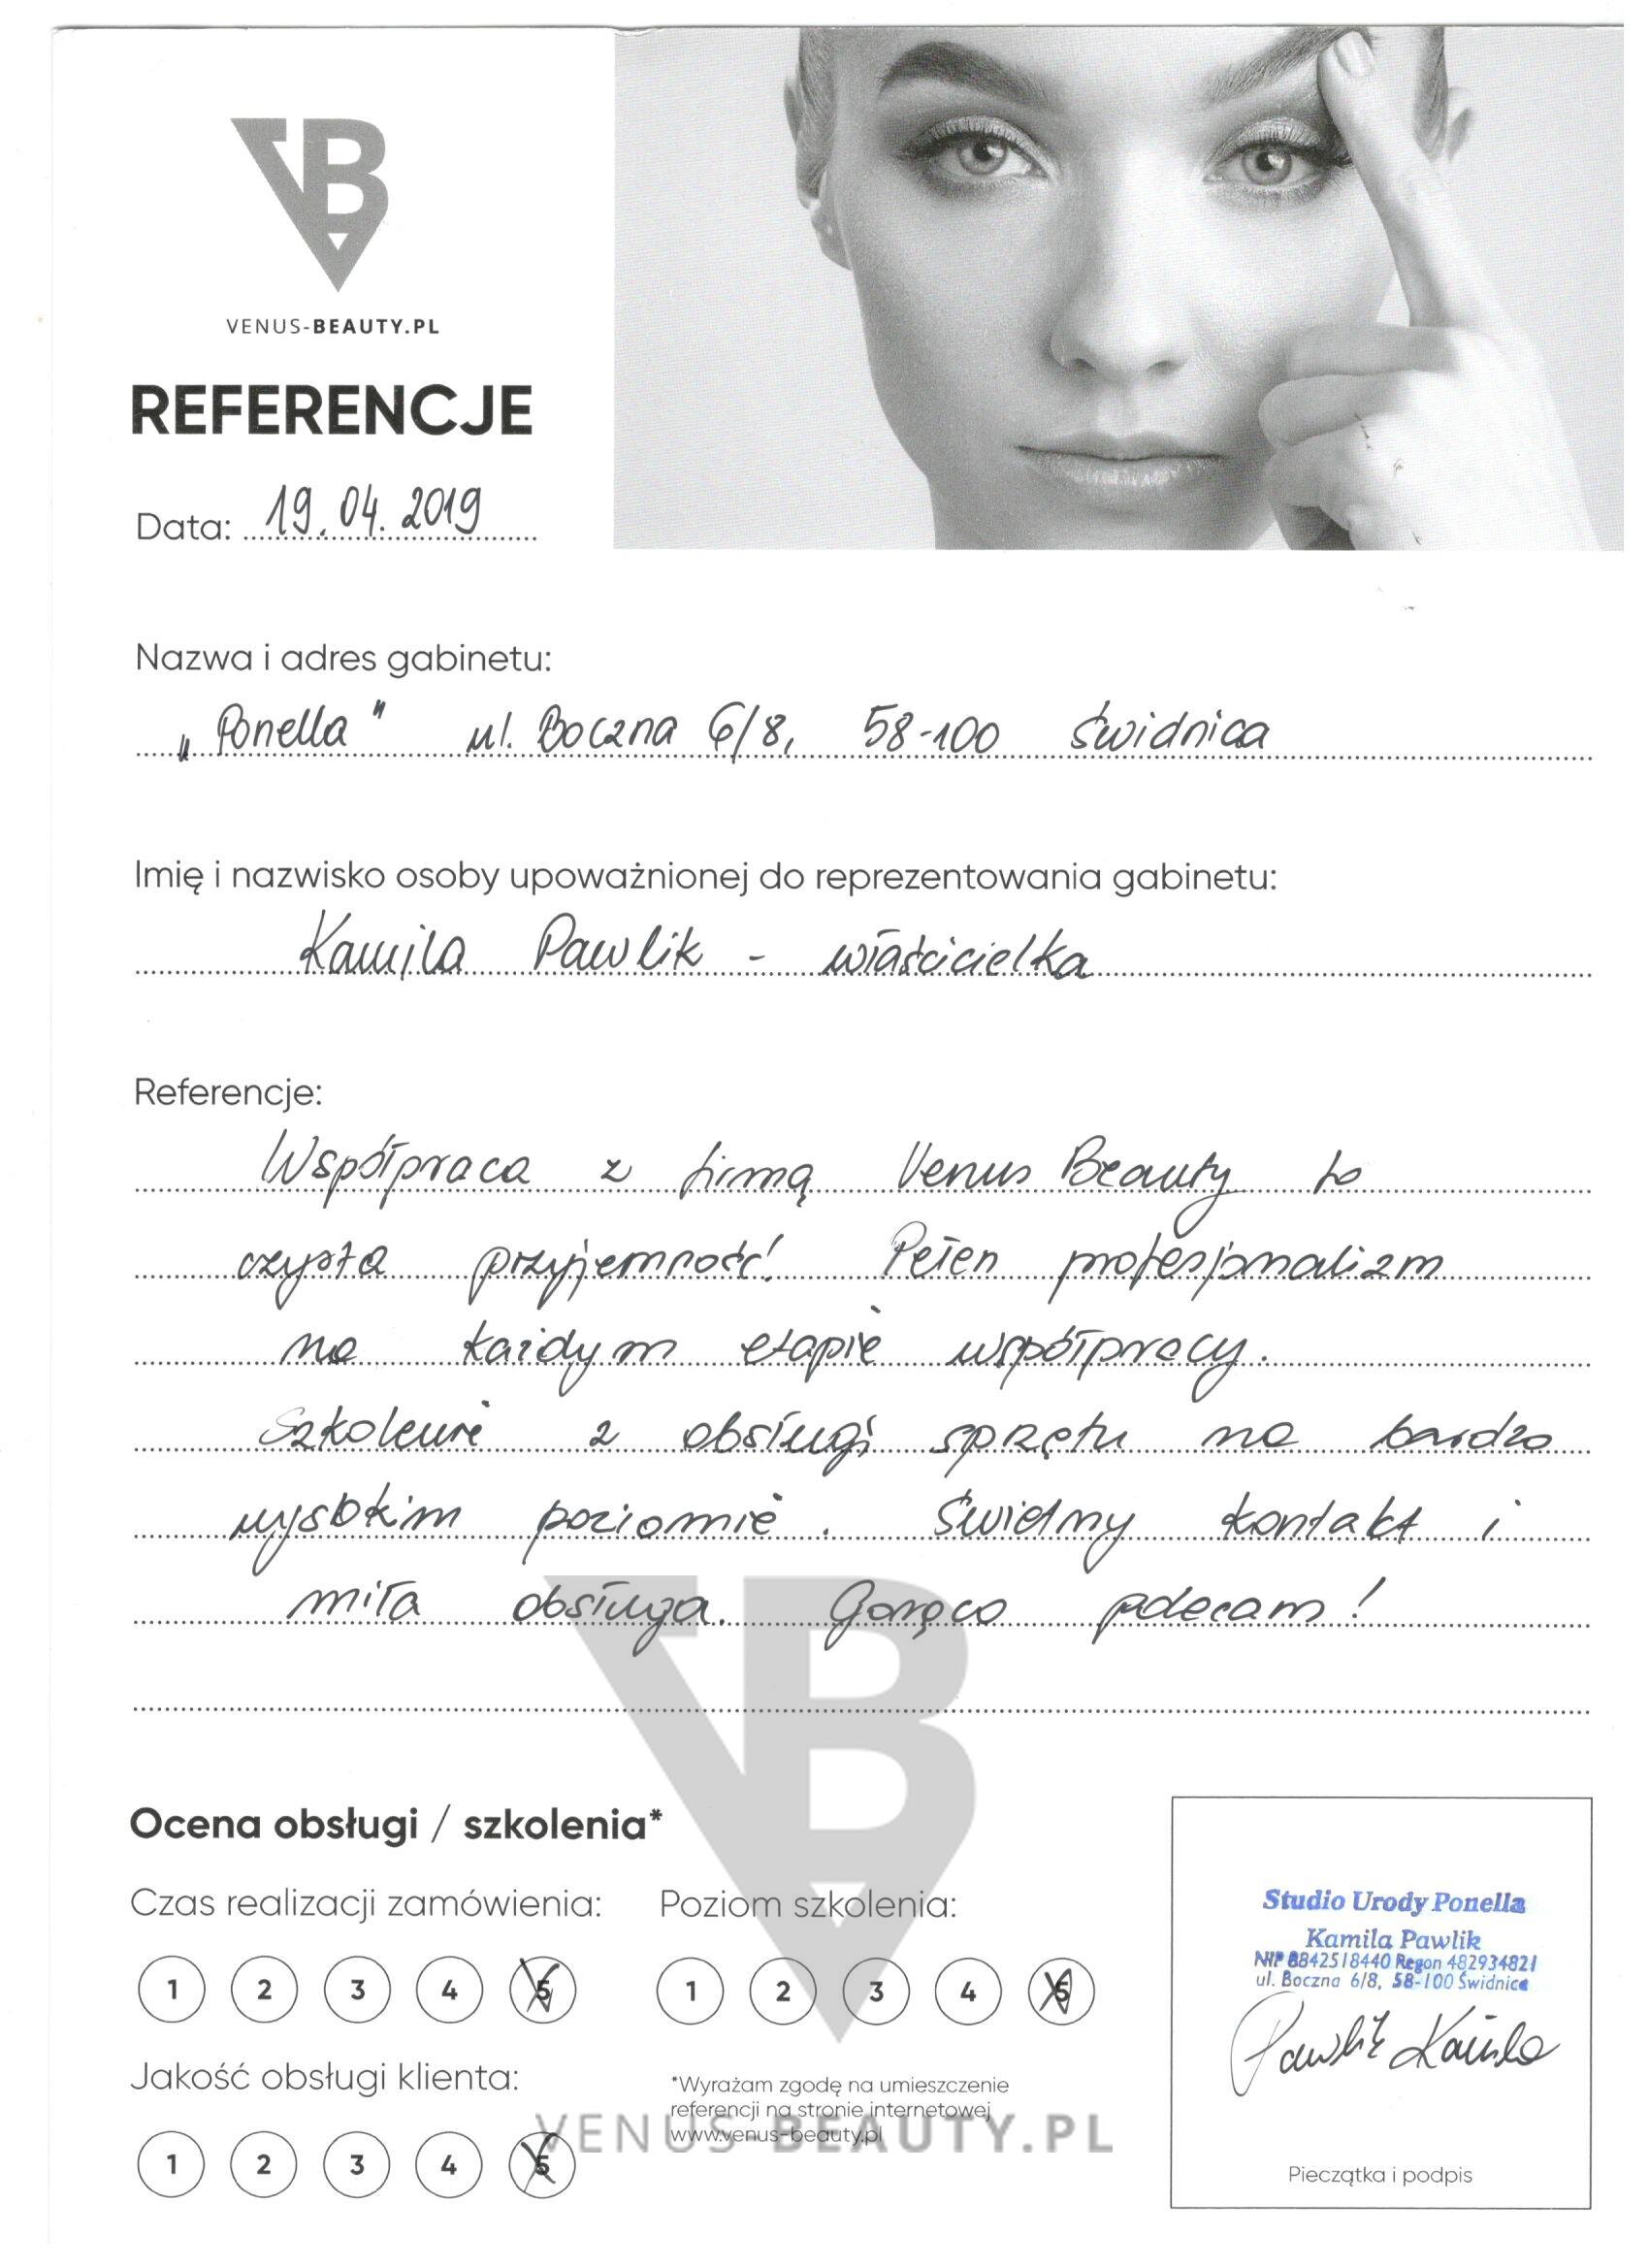 VB
VENUS-BEAUTY.PL
REFERENCJE
Data: 19.04.2019
Nazwa i adres gabinetu:
„Ponella" ul. Boczna 6/8, 58-100 Świdnica
Imię i nazwisko osoby upoważnionej do reprezentowania gabinetu:
Kamila Pawlik - właścicielka
Referencje:
Współpraca z firmą Venus Beauty to
czysta przyjemność! Pełen profesjonalizm
na każdym etapie współpracy.
Szkolenie z obsługi sprzętu na bardzo
wysokim poziomie. Świetny kontakt i
miła obsługa. Gorąco polecam!
Ocena obsługi / szkolenia*
Czas realizacji zamówienia: Poziom szkolenia:
1 2 3 4 5 1 2 3 4 5
Jakość obsługi klienta:
1 2 3 4 5
*Wyrażam zgodę na umieszczenie
referencji na stronie internetowej
www.venus-beauty.pl
VB
VENUS-BEAUTY.PL
Studio Urody Ponella
Kamila Pawlik
NIP 8842518440 Regon 482934821
ul. Boczna 6/8, 58-100 Świdnica
Pawlik Kamila
Pieczątka i podpis